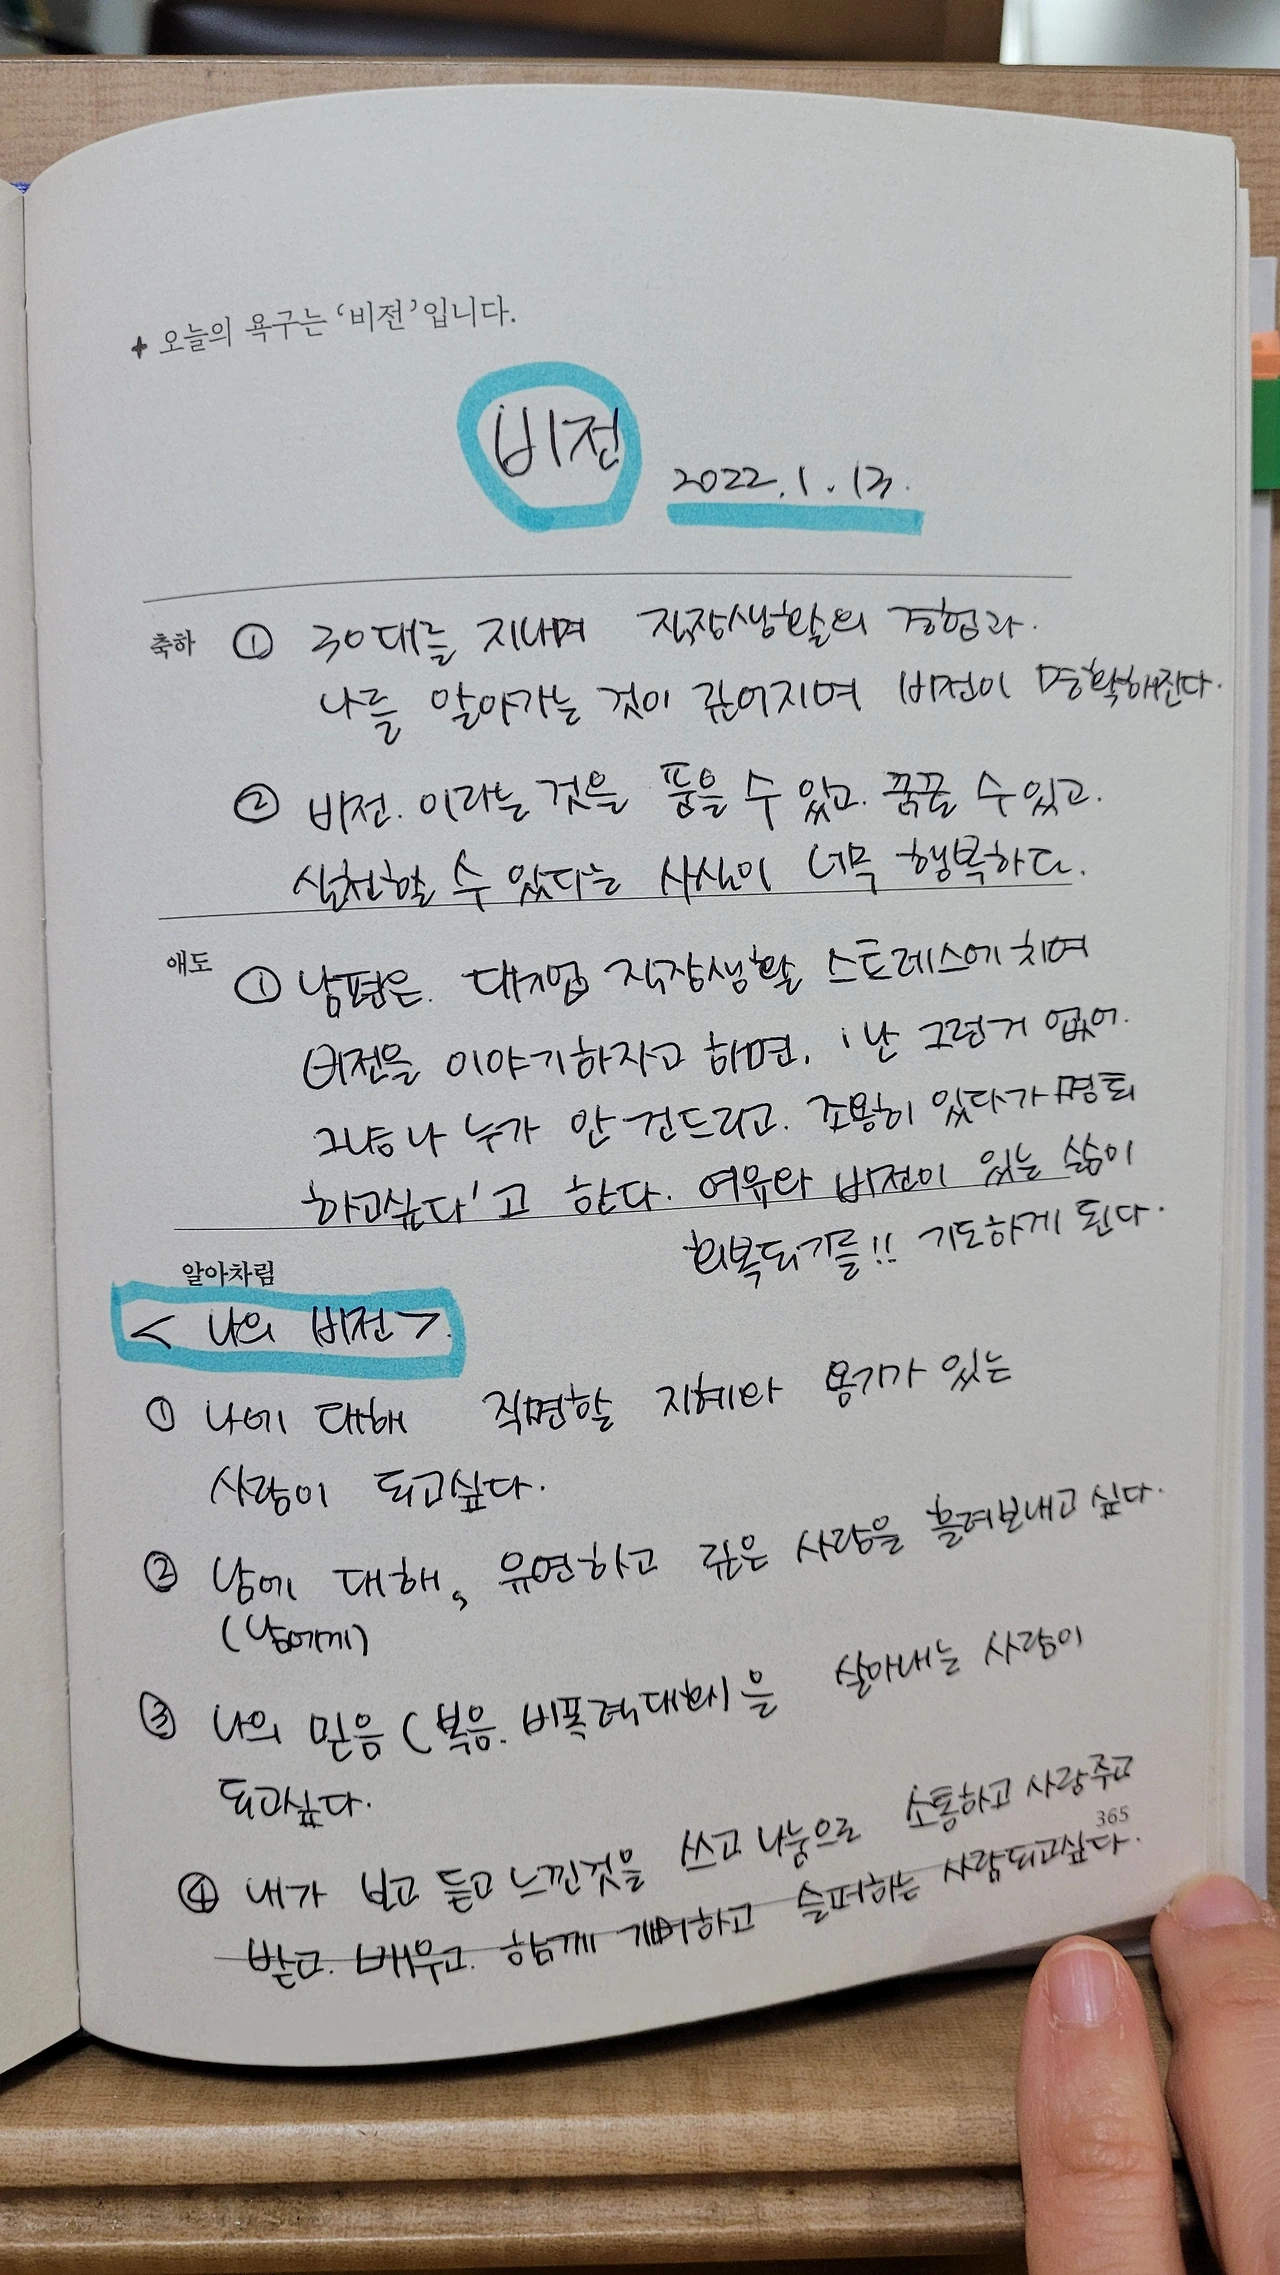 ✦ 오늘의 욕구는 ‘비전’입니다.
비전
2022. 1. 13.
축하 ① 30대를 지나며 직장생활의 경험과.
나를 알아가는 것이 깊어지며 비전이 명확해진다.
② 비전. 이라는 것을 품을 수 있고. 꿈꿀 수 있고.
실천할 수 있다는 사실이 너무 행복하다.
애도 ① 남편은. 대기업 직장생활 스트레스에 치여
비전을 이야기하자고 하면, '난 그런거 없어.
그냥 나 누가 안 건드리고. 조용히 있다가 명퇴
하고싶다'고 한다. 여유와 비전이 있는 삶이
회복되기를!! 기도하게 된다.
알아차림
< 나의 비전 >.
① 나에 대해 직면할 지혜와 용기가 있는
사람이 되고싶다.
② 남에 대해, 유연하고 깊은 사랑을 흘려보내고 싶다.
(남에게)
③ 나의 믿음 (복음. 비폭력대화)을 살아내는 사람이
되고싶다.
④ 내가 보고 듣고 느낀것을 쓰고 나눔으로 소통하고 사랑주고
365
받고. 배우고. 함께 기뻐하고 슬퍼하는 사람되고싶다.